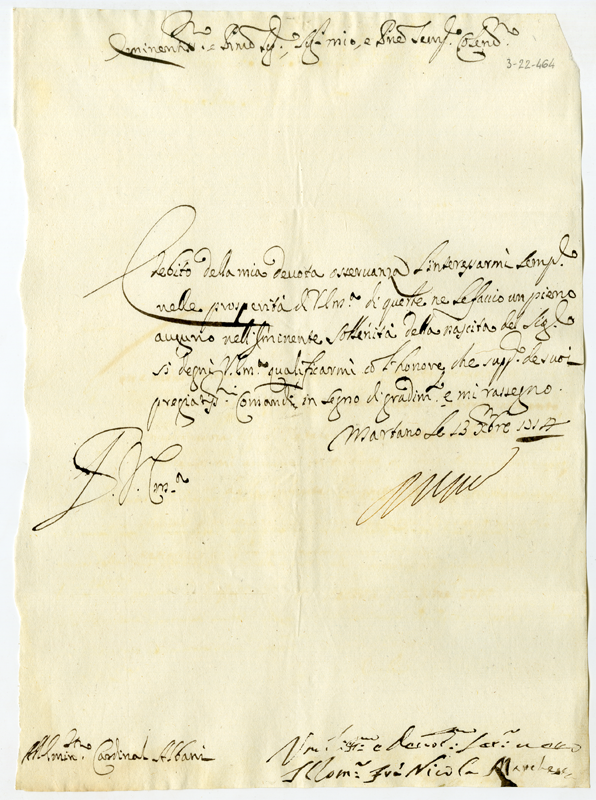 Eminent.mo e Rmo Sig.r, Sig.r mio, e Pne semp. Colend.mo
3-22-464
debito della mia devota osservanza l'interessarmi semp.e
nelle prosperità di V. Em.a di queste ne le faccio un pieno
augurio nell'Iminente sollenità della nascita del Sig.re
si degni V. Em.a qualificarmi cō l'honore, che supp.o de suoi
pregiat.mi Comandi in segno di gradim.to e mi rassegno.
Martano le 13 Xbre 1714
D. V. Em.a
All'Emin.mo Cardinal Albani
Um.mo e Devot.mo Ser.re
Frà Nicola Marchese